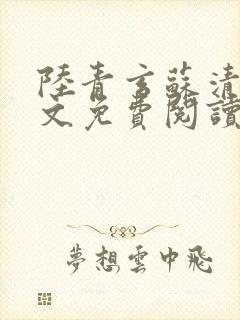 陸青言蘇清
文免費閱讀
夢想雲中飛